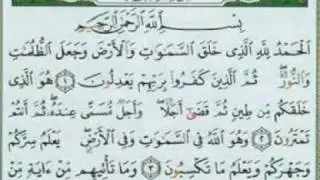 بِسْمِ اللَّهِ الرَّحْمَٰنِ الرَّحِيمِ
الْحَمْدُ لِلَّهِ الَّذِي خَلَقَ السَّمَٰوَٰتِ وَالْأَرْضَ وَجَعَلَ الظُّلُمَٰتِ
وَالنُّورَ ۖ ثُمَّ الَّذِينَ كَفَرُوا بِرَبِّهِمْ يَعْدِلُونَ ١ هُوَ الَّذِي
خَلَقَكُم مِّن طِينٍ ثُمَّ قَضَىٰ أَجَلًا ۖ وَأَجَلٌ مُّسَمًّى عِندَهُ ۖ ثُمَّ أَنتُمْ
تَمْتَرُونَ ٢ وَهُوَ اللَّهُ فِي السَّمَٰوَٰتِ وَفِي الْأَرْضِ ۖ يَعْلَمُ سِرَّكُمْ
وَجَهْرَكُمْ وَيَعْلَمُ مَا تَكْسِبُونَ ٣ وَمَا تَأْتِيهِم مِّنْ ءَايَةٍ مِّنْ